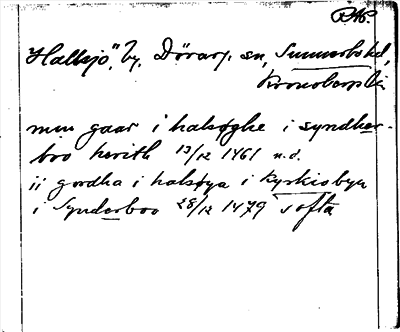 PAP
Hallsjö", by, Dörarp sn, Sunnerbo hd,
Kronobergs län
min gaar i halsøghe i syndher-
bro herith 13/12 1461 n.d.
ii gordha i halsøya i kyrkiobyn
i Synderboo 28/12 1479 Softa